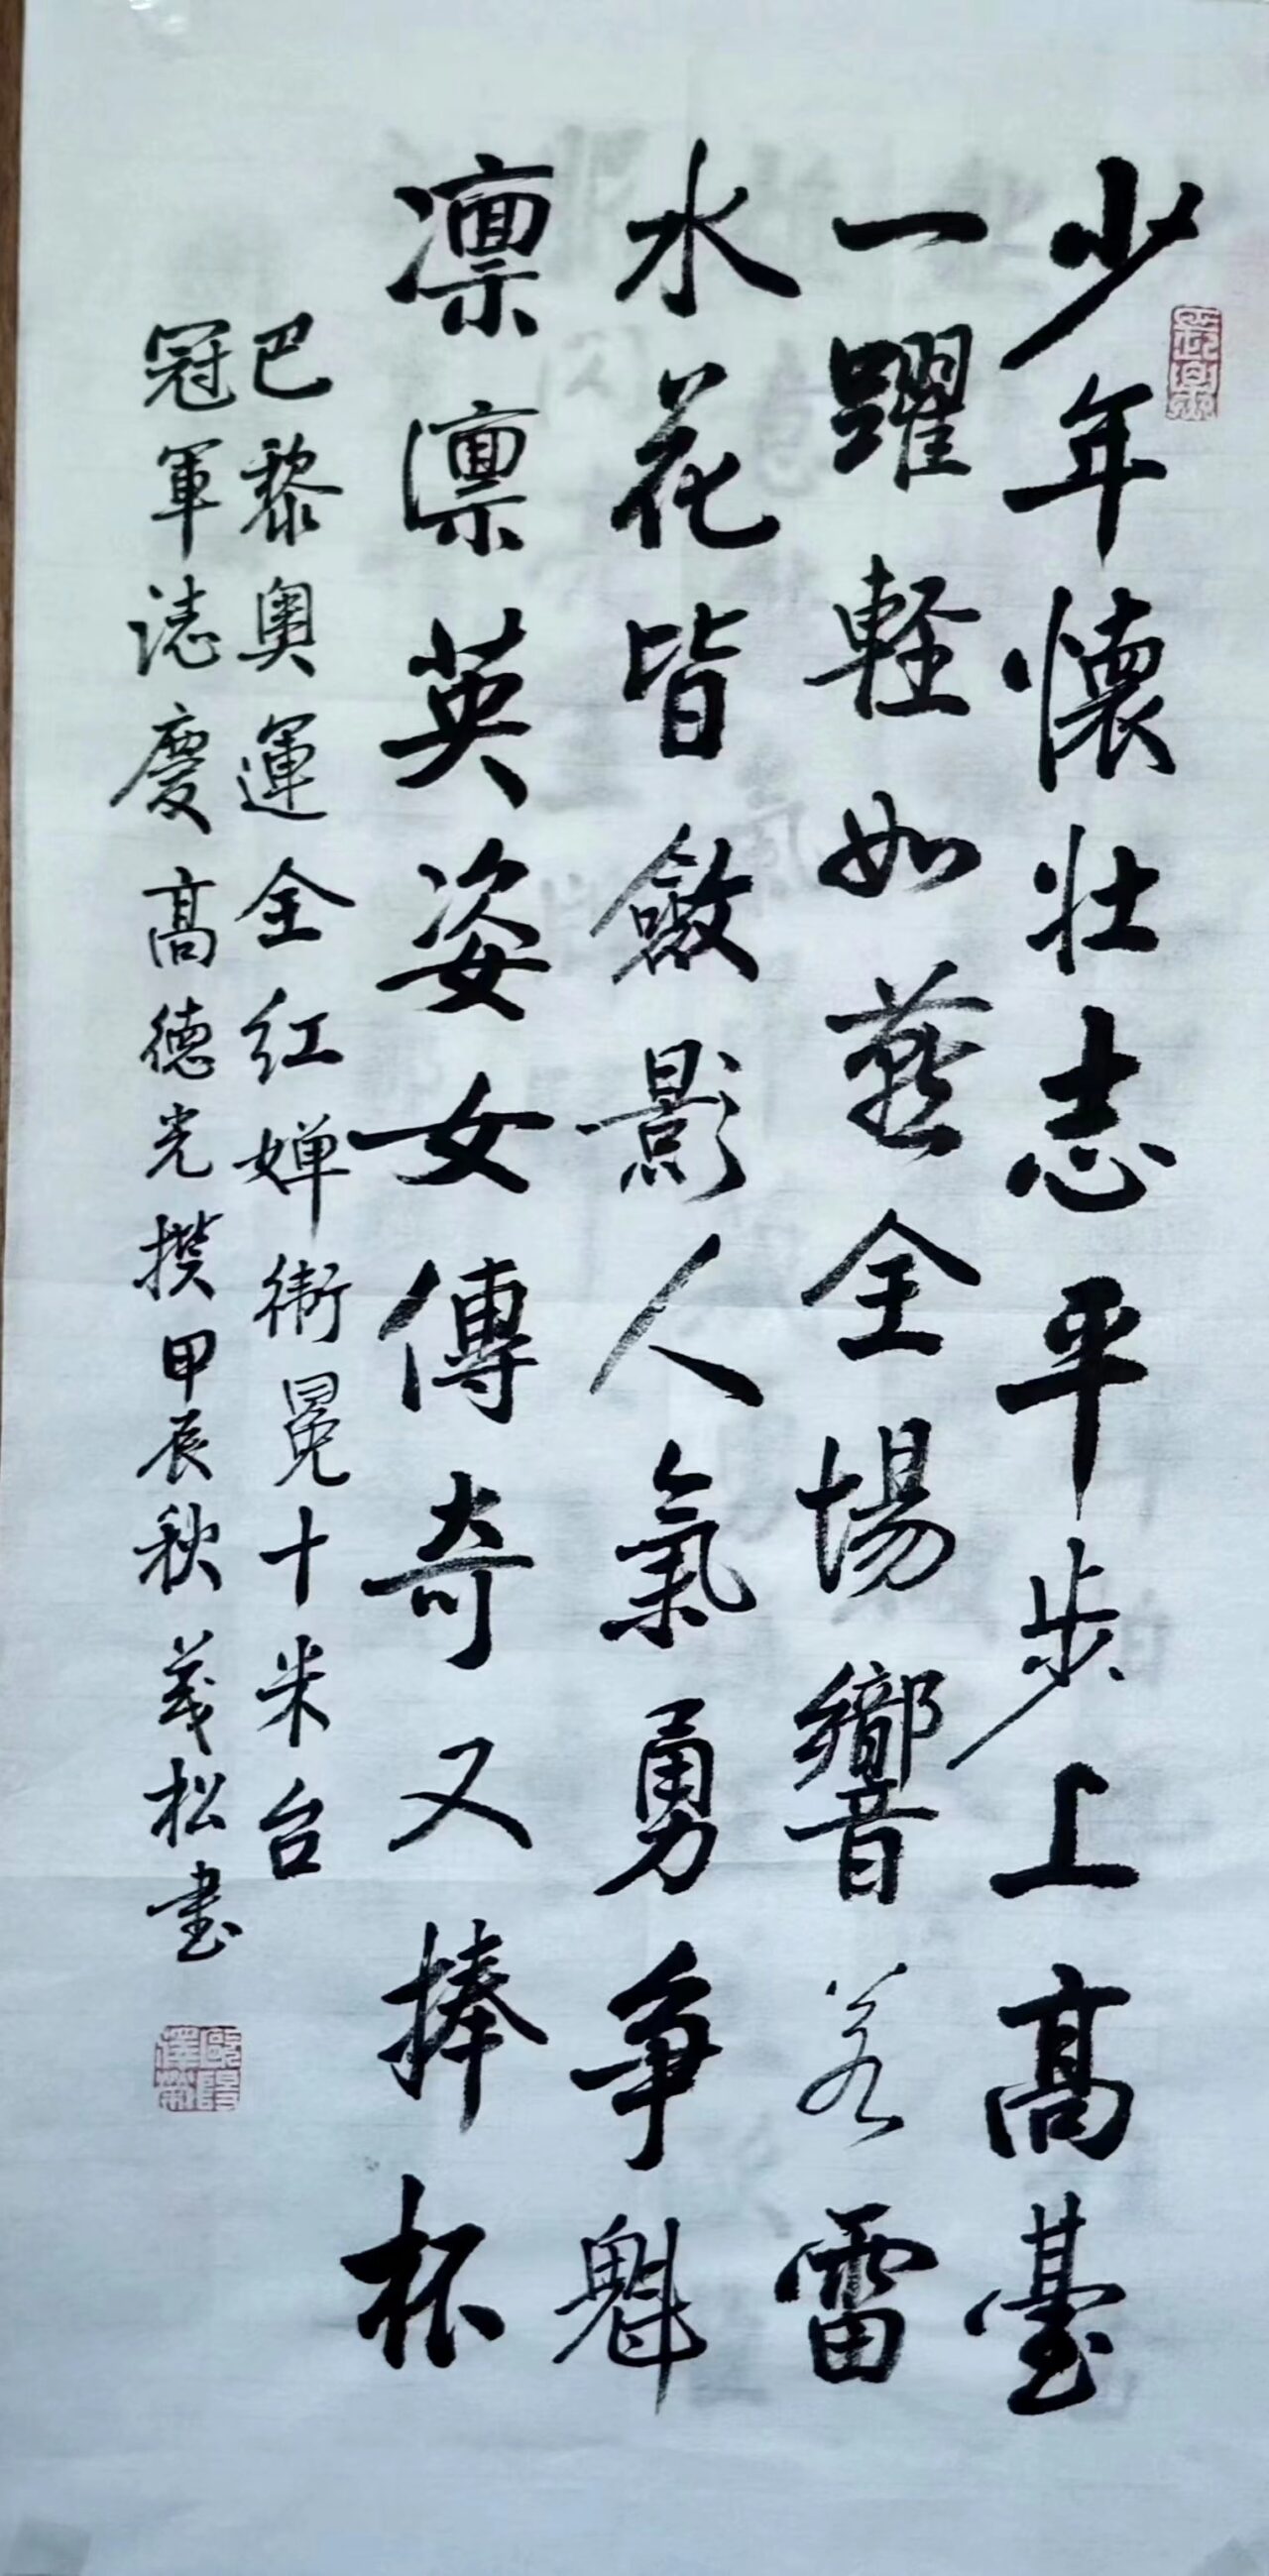 少年懷壮志平步上髙臺
一躍軽如燕全場響若雷
水花皆斂影人氣勇争魁
凛凛英姿女傳奇又捧杯
巴黎奥運全红婵衛冕十米台
冠軍誌慶髙德光撰甲辰秋義松書